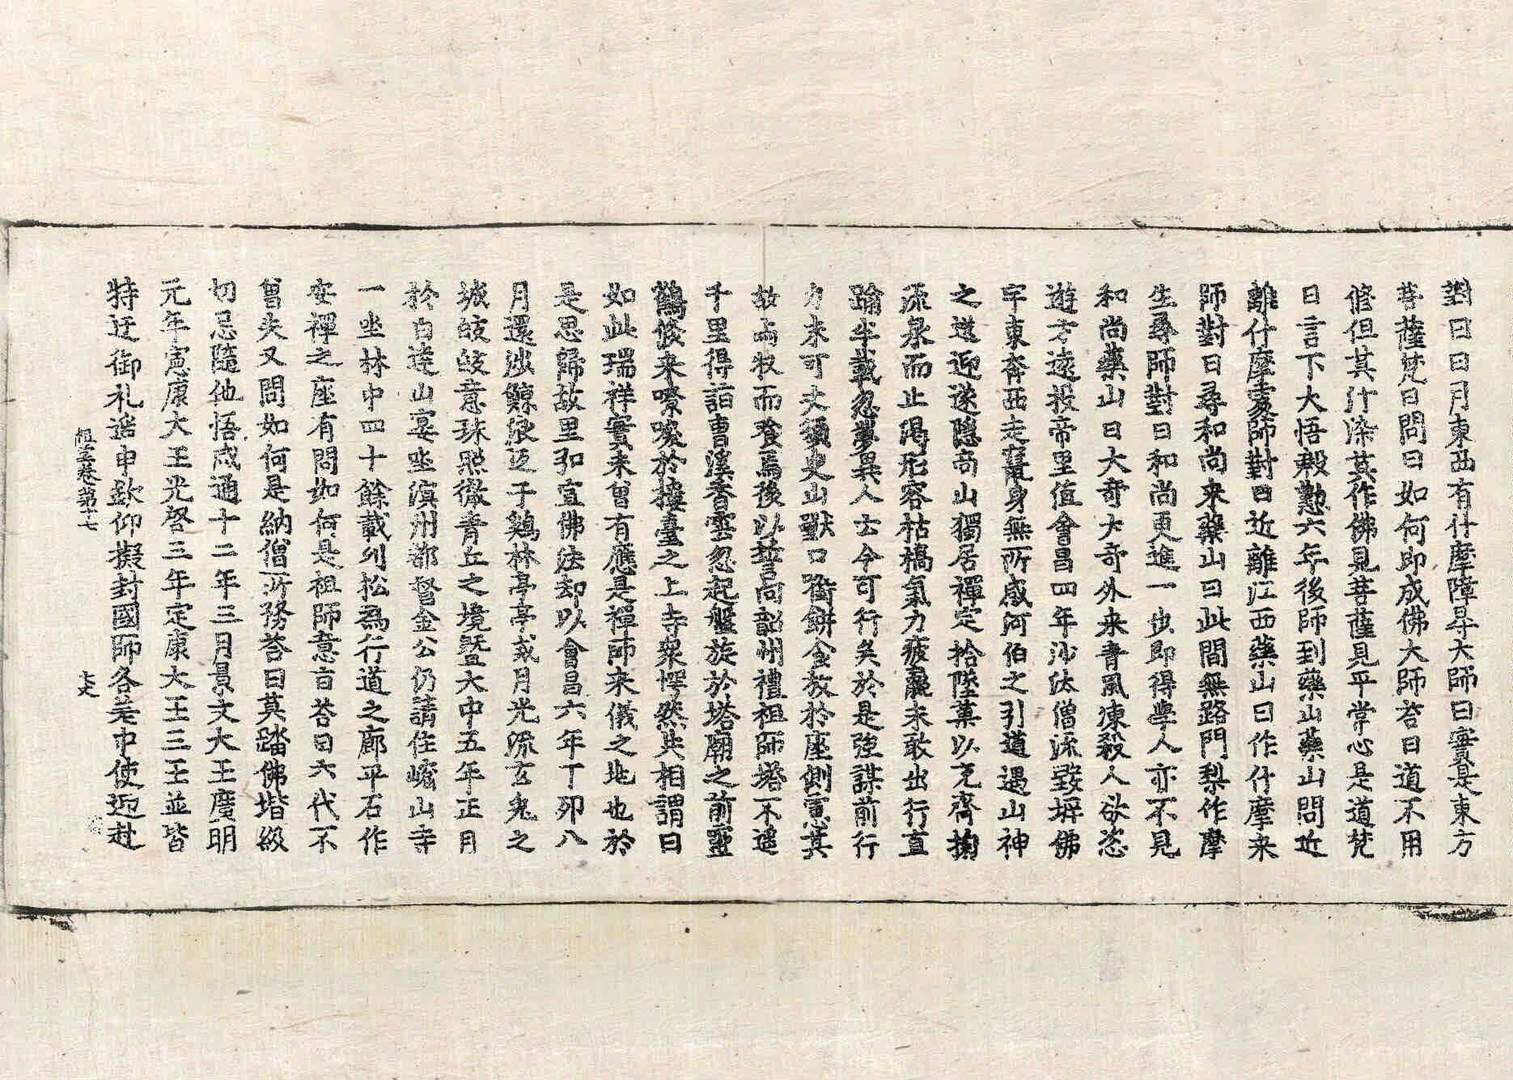 對曰日月東西有什摩障㝵大師曰實是東方
菩薩梵日問曰如何即成佛大師答曰道不用
修但莫汙染莫作佛見菩薩見平常心是道梵
日言下大悟殷懃六年後師到藥山藥山問近
離什摩處師對曰近離江西藥山曰作什摩來
師對曰尋和尚來藥山曰此間無路闍梨作摩
生尋師對曰和尚更進一步即得學人亦不見
和尚藥山曰大奇大奇外來青風凍殺人欲恣
遊方遠投帝里值會昌四年沙汰僧流毀坼佛
宇東奔西走竄身無所感河伯之引道遇山神
之送迎遂隱商山獨居禪定拾墜菓以充齋掬
流泉而止渴形容枯槁氣力疲羸未敢出行直
踰半載忽夢異人云今可行矣於是強謀前行
力未可丈須臾山獸口銜餅食放於座側憲其
故而收而飡焉後以誓向韶州禮祖師塔不遙
千里得詣曹溪香雲忽起盤旋於塔廟之前靈
鶴倏來嘹唳於樓臺之上寺衆愕然共相謂曰
如此瑞祥實未曾有應是禪師來儀之兆也於
是思歸故里弘宣佛法却以會昌六年丁卯八
月還涉鯨浪返于鷄林亭亭戒月光流玄兔之
城皎皎意珠照徹青丘之境曁大中五年正月
於白達山宴坐溟州都督金公仍請住崛山寺
一坐林中四十餘載列松爲行道之廊平石作
安禪之座有問如何是祖師意旨答曰六代不
曾失又問如何是納僧所務答曰莫踏佛堦級
切忌隨他悟咸通十二年三月景文大王廣明
元年憲康大王光啓三年定康大王三王並皆
特迂御札遙申欽仰擬封國師各差中使迎赴
祖堂卷第十七